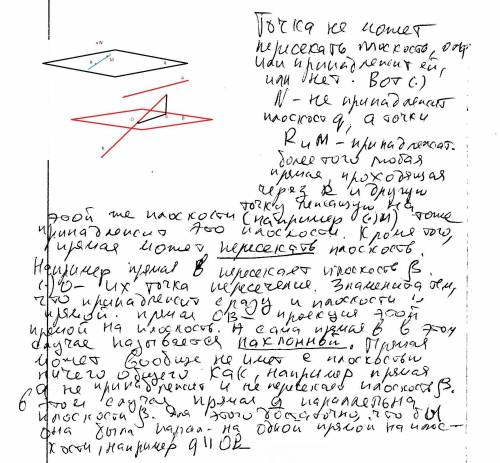 Точка не может
пересекать плоскость, она
или принадлежит ей,
или нет. Вот (.)
N - не принадлежит
плоскост q, а точки
R и M - принадлежат.
более того любая
прямая, проходящая
через R и другую
точку лежащую на
этой же плоскости (например (.) M) тоже
принадлежит этой плоскости. Кроме того,
прямая может пересекать плоскость.
Например прямая в пересекает плоскость β.
(.) O - их точка пересечения. Знаменита тем,
что принадлежит сразу и плоскости и
прямой. прямая OB - проекция этой
прямой на плоскость. А сама прямая в в этом
случае называется наклонной. Прямая
может вообще не имет с плоскостью
ничего общего как, например прямая
q не принадлежит и не пересекает плоскость β.
в этом случае прямая q паралельна
плоскости β. Для этого достаточно, что бы
она была парал-на одной прямой на плос-
кости, например q || OR
N
R
M